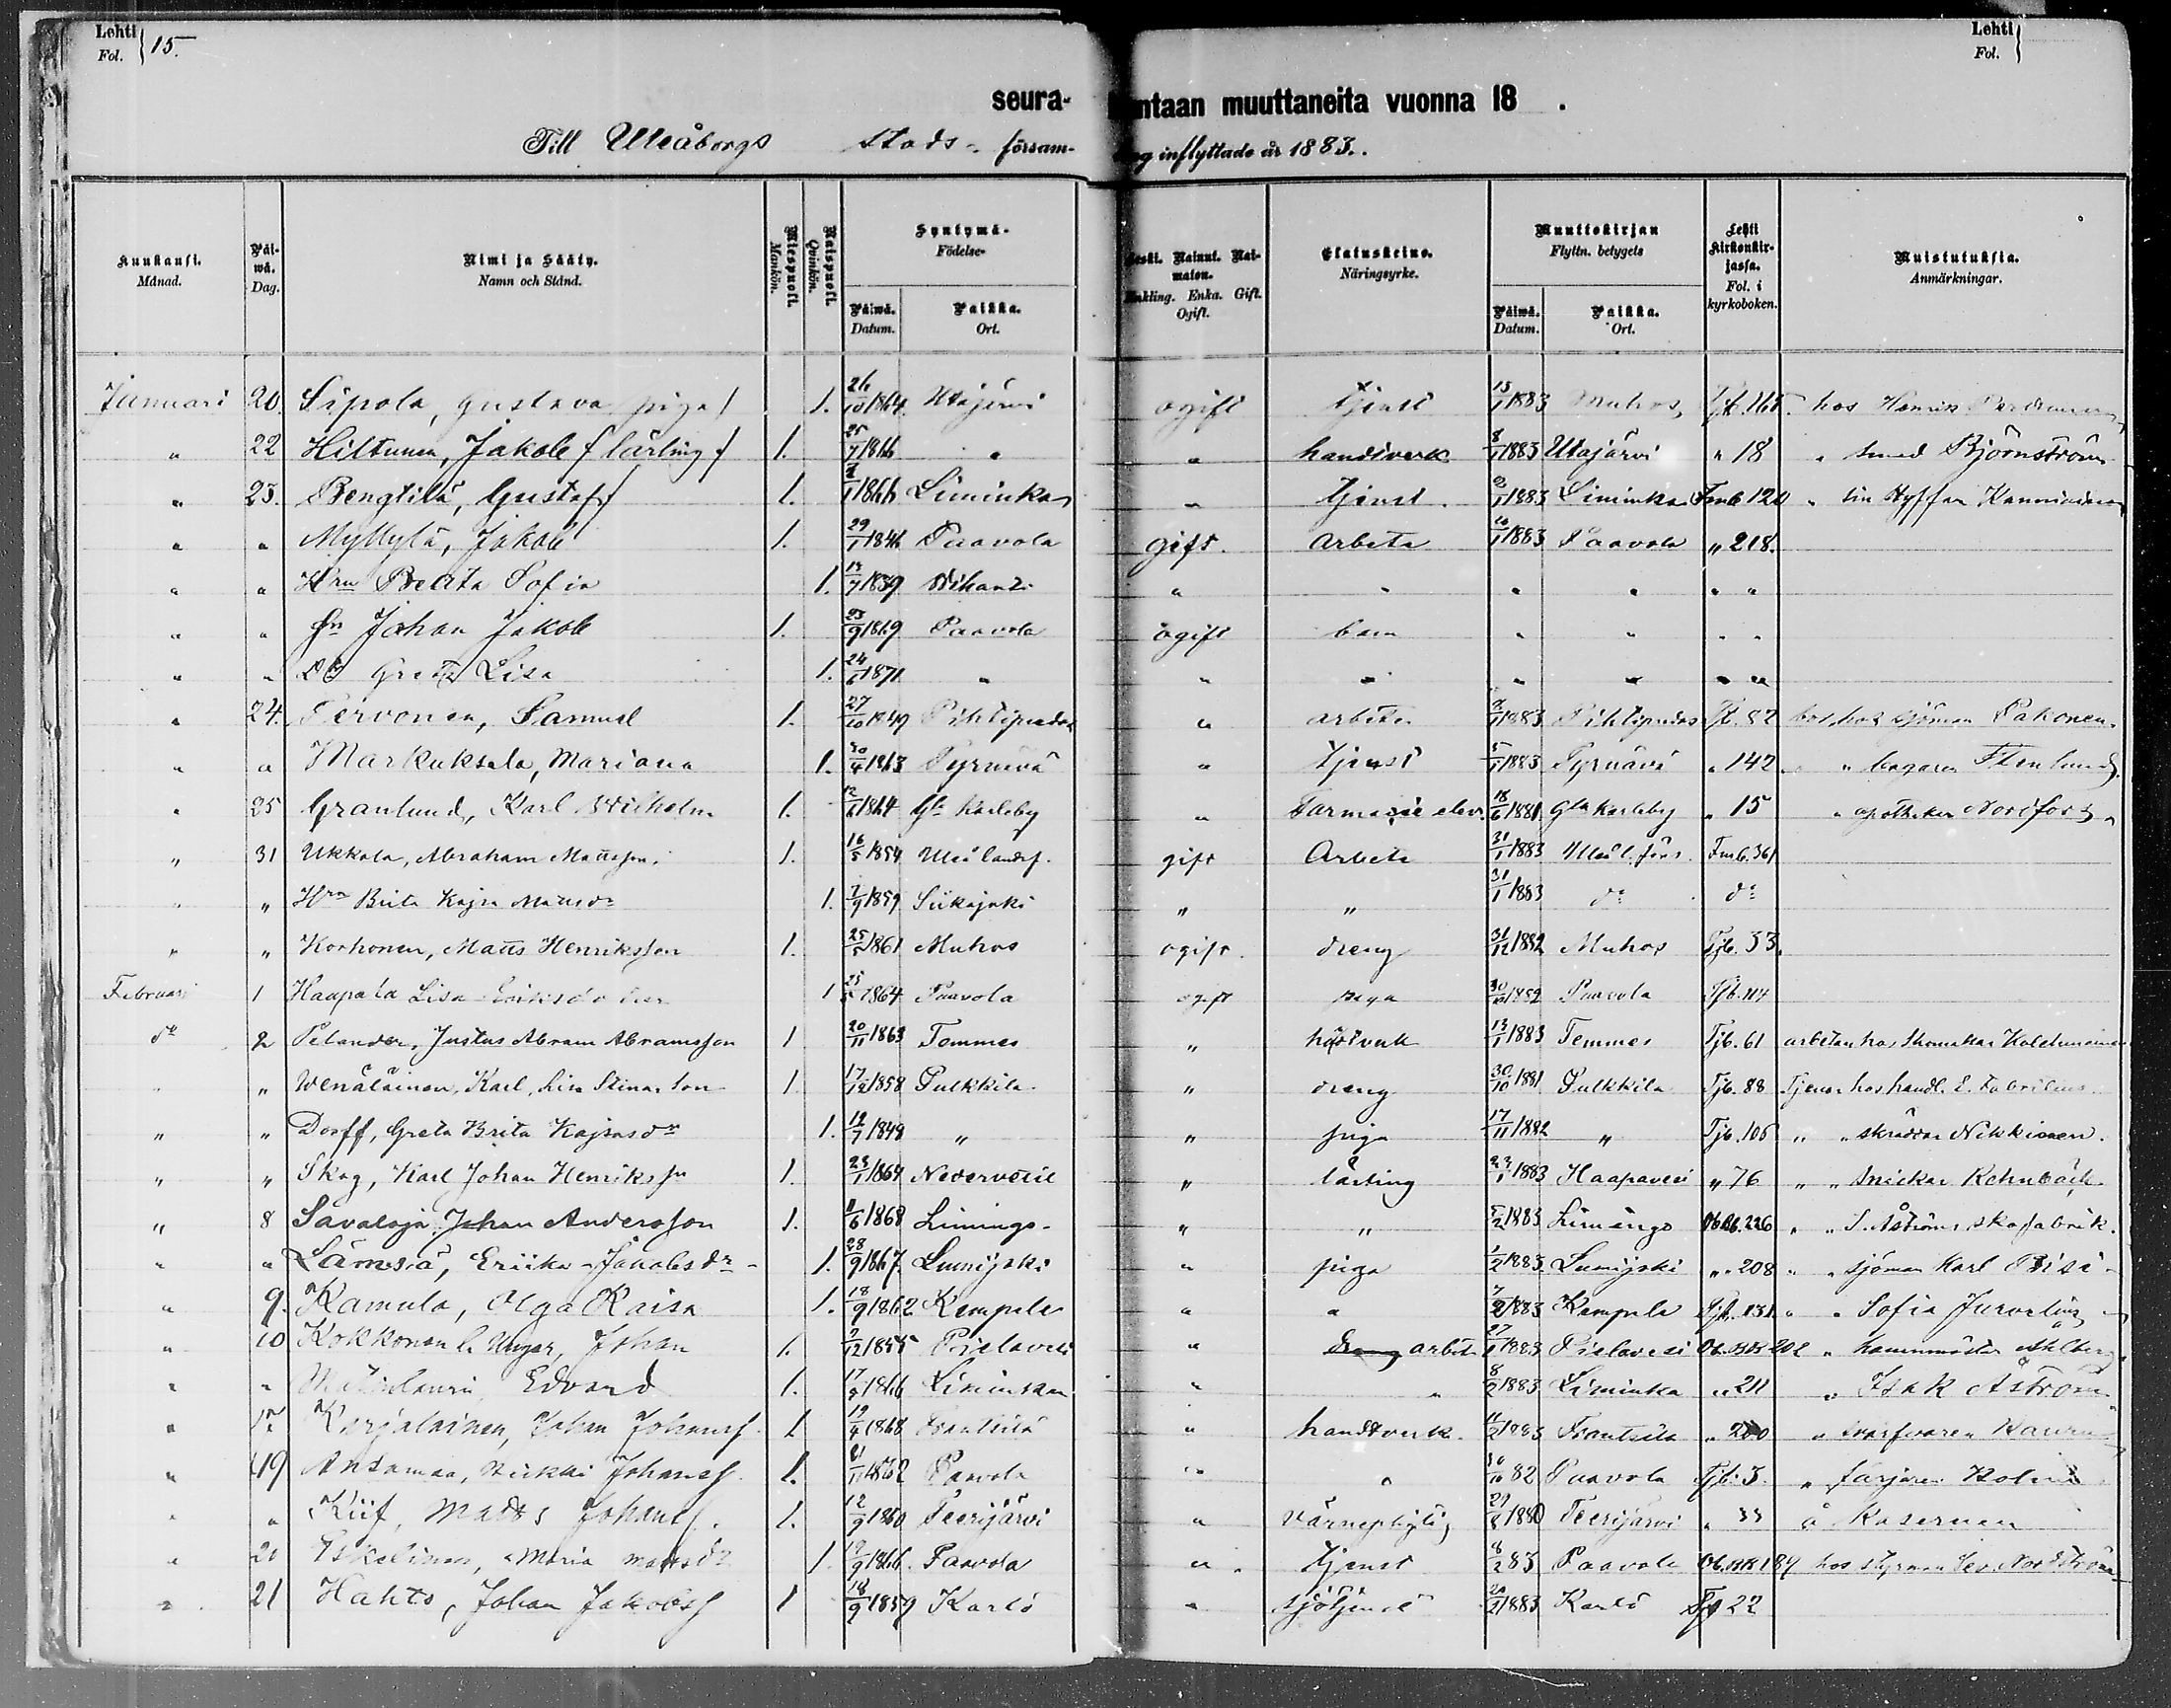 Lehti Fol. 15. Lehti Fol.
seura- kuntaan muuttaneita vuonna 18 .
Till Uleåborgs stads- försam- ling inflyttade år 1883.
Kuukausi. Månad. Päi-wä. Dag. Nimi ja Sääty. Namn och Stånd. Miespuoli. Mankön. Waispuoli. Qvinkön. Syntymä- Födelse- Päiwä. Datum. Paikka. Ort. Leski. Nainut. Nai-maton. Enkling. Enka. Gift. Ogift. Elatuskeino. Näringsyrke. Muuttokirjan Flyttn. betygets Päiwä. Datum. Paikka. Ort. Lehti Kirkonkir-jassa. Fol. i kyrkoboken. Muistutuksia. Anmärkningar.
Januari 20. Sipola, Gustava piga 1. 26/10 1864 Utajärvi ogift tjenst 15/1 1883 Muhos, hos Henrik
" 22 Hiltunen, Jakob lärling 1. 25/7 1866 " " handtverk 8/1 1883 Utajärvi " 18 " smed Björnström
" 23. Bengtilä, Gustaf 1. 1866 Liminka " tjenst. 2/1 1883 Liminka Fmb 120 "
" " Myllylä, Jakob 1. 29/1 1846 Paavola gift. arbete 1883 Paavola " 218.
" " Hru Beata Sofia 1. 13/7 1839 Vihanti " " " " " "
" " Sn Johan Jakob 1. 23/9 1869 Paavola ogift barn " " " "
" " Dr Greta Lisa 1. 24/6 1871 " " " " " " "
" 24. Tervonen, Samuel 1. 27/10 1849 Pihtipudas " arbete 1883 Pihtipudas Tjb. 82 hos sjöman Pakonen.
" " Markuksela, Mariana 1. 30/4 1863 Tyrnävä " tjenst 5/1 1883 Tyrnävä " 142 " " bagaren Stenlund.
" 25 Granlund, Karl Wilhelm 1. 12/6 1864 Gla Karleby " Farmacie elev. 18/6 1881 Gla Karleby " 15 " apotheker
" 31 Ukkola, Abraham Mattsson. 1. 16/5 1854 Uleå landsf. gift Arbete 31/1 1883 Uleå l. förs. Fmb. 361
" " Hru Brita Kajsa Mattsdr 1. 7/9 1859 Siikajoki " " 31/1 1883 do do
" " Korhonen, Matts Henriksson 1. 25/5 1861 Muhos ogift. dreng 31/12 1882 Muhos Tjb. 33.
Februari 1 Haapala Lisa 1 1864 Paavola ogift piga 1882 Paavola Tjb. 114
do 2 Pelander, Justus Abram Abramsson 1 20/11 1863 Temmes " 13/1 1883 Temmes Tjb. 61 arbetar hos skomakar
" " Wenäläinen, Karl, Lisa Stinas son 1. 17/12 1858 Pulkkila " dreng 30/10 1881 Pulkkila Tjb. 88 Tjenar hos handl. E. Fabritius
" " Dorff, Greta Brita Kajsasdr 1. 12/7 1848 " " piga 17/11 1882 " Tjb. 106 " " skräddar Nikkinen.
" " Skog, Karl Johan Henrikssn 1. 23/1 1864 Nedervetil " lärling 23/1 1883 Haapavesi " 76 " " snickar Rehnbäck.
" 8 Savaloja Johan Andersson 1. 1/6 1868 Limingo- " " 5/2 1883 Limingo 226 " " S. Åströms skofabrik.
" " Lämsä, Eriika Jakobsdr- 1. 28/9 1867. Lumijoki " piga 1/2 1883. Lumijoki " 208 " " sjöman Karl
" 9. Kamula, Olga Kaisa 1. 18/9 1862 Kempele " " 7/2 1883 Kempele Tjb. 131. " " Sofia Jurvelius
" 10 Kokkonen l. Unger, Johan 1. 2/12 1855 Pielavesi " dreng arbete 27/1 1883 Pielavesi Ob. BK 202 " hamnmäster Ahlberg.
" " Edvard 1. 1866 Liminka " " 8/2 1883 Liminka " 211 " Isak Åström
" Karjalainen, Johan Johanss. 1 19/4 1868 Frantsila " handtverk. 11/2 1883 Frantsila " 200 " svarfvaren
" 19 Ansamaa, Heikki Johanss. 1. 1862 Paavola " " 82 Paavola Tjb. 5. " färjaren
" " Kiif, Matts Johanss. 1. 12/9 1860 Teerijärvi " värnepligtig 1880 Teerijärvi " 33 å Kasernen
" 20 Eskelinen, Maria Mattsdr 1. 1866. Paavola " tjenst 8/2 83 Paavola Ob. BK 184 hos styrman
" 21 Hahto, Johan Jakobss 1 18/9 1859 Karlö " sjötjenst 20/2 1883 Karlö Tj 22